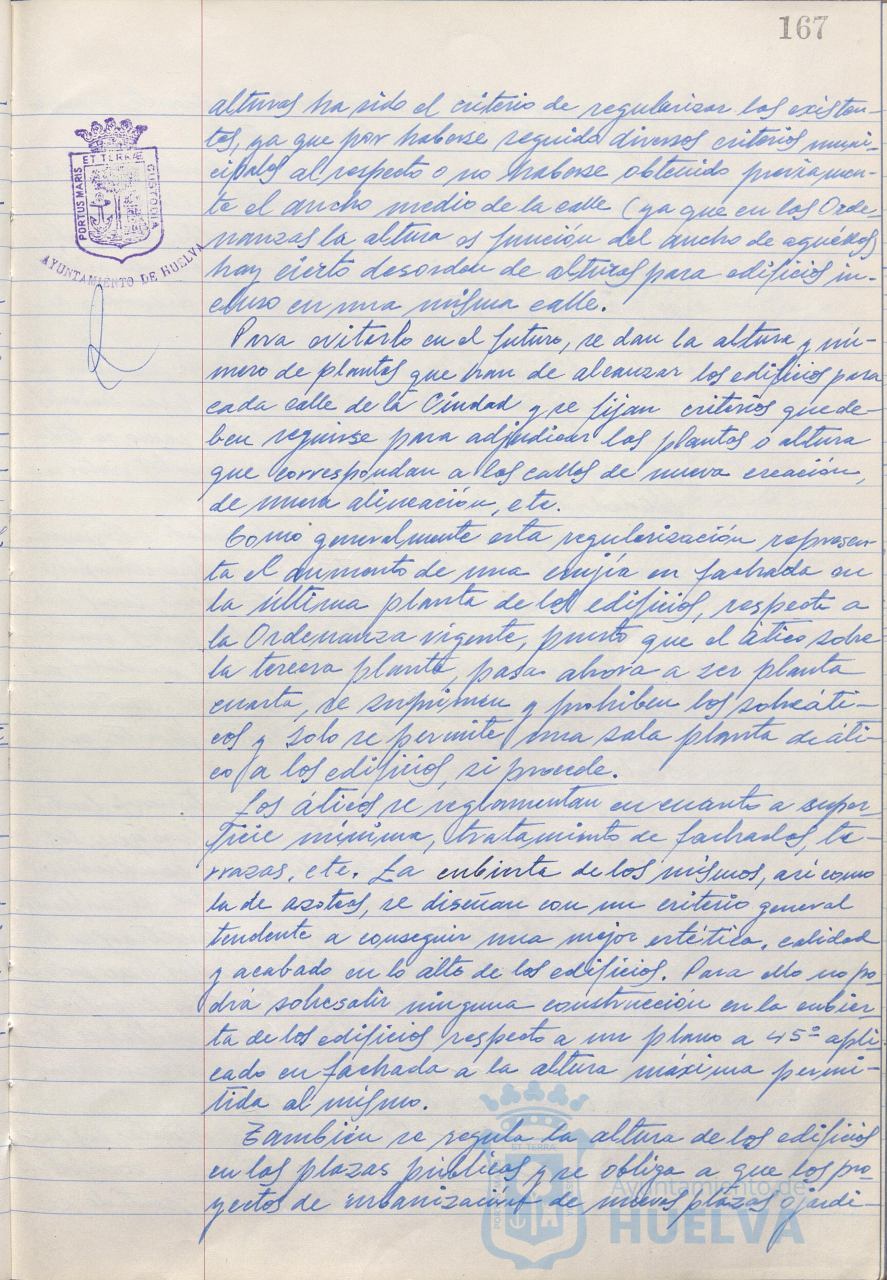 167
PORTUS MARIS ET TERRÆ CUSTODIA
AYUNTAMIENTO DE HUELVA
alturas ha sido el criterio de regularizar las existen-
tes, ya que por haberse seguido diversos criterios muni-
cipales al respecto o no haberse obtenido previamen-
te el ancho medio de la calle (ya que en las Orde-
nanzas la altura es función del ancho de aquéllas)
hay cierto desorden de alturas para edificios in-
cluso en una misma calle.
Para evitarlo en el futuro, se dan la altura y nú-
mero de plantas que han de alcanzar los edificios para
cada calle de la Ciudad y se fijan criterios que de-
ben seguirse para adjudicar las plantas o altura
que correspondan a las calles de nueva creación,
de nueva alineación, etc.
Como generalmente esta regularización represen-
ta el aumento de una crujía en fachada en
la última planta de los edificios, respecto a
la Ordenanza vigente, puesto que el ático sobre
la tercera planta, pasa ahora a ser planta
cuarta, se suprimen y prohiben los sobreáti-
cos y solo se permite una sola planta de áti-
co a los edificios, si procede.
Los áticos se reglamentan en cuanto a super-
ficie mínima, tratamiento de fachadas, te-
rrazas, etc. La cubierta de los mismos, así como
la de azoteas, se diseñan con un criterio general
tendente a conseguir una mejor estética, calidad
y acabado en lo alto de los edificios. Para ello no po-
drá sobresalir ninguna construcción en la cubier-
ta de los edificios respecto a un plano a 45º apli-
cado en fachada a la altura máxima permi-
tida al mismo.
También se regula la altura de los edificios
en las plazas públicas y se obliga a que los pro-
yectos de urbanización de nuevas plazas ajardi-
Ayuntamiento de
HUELVA